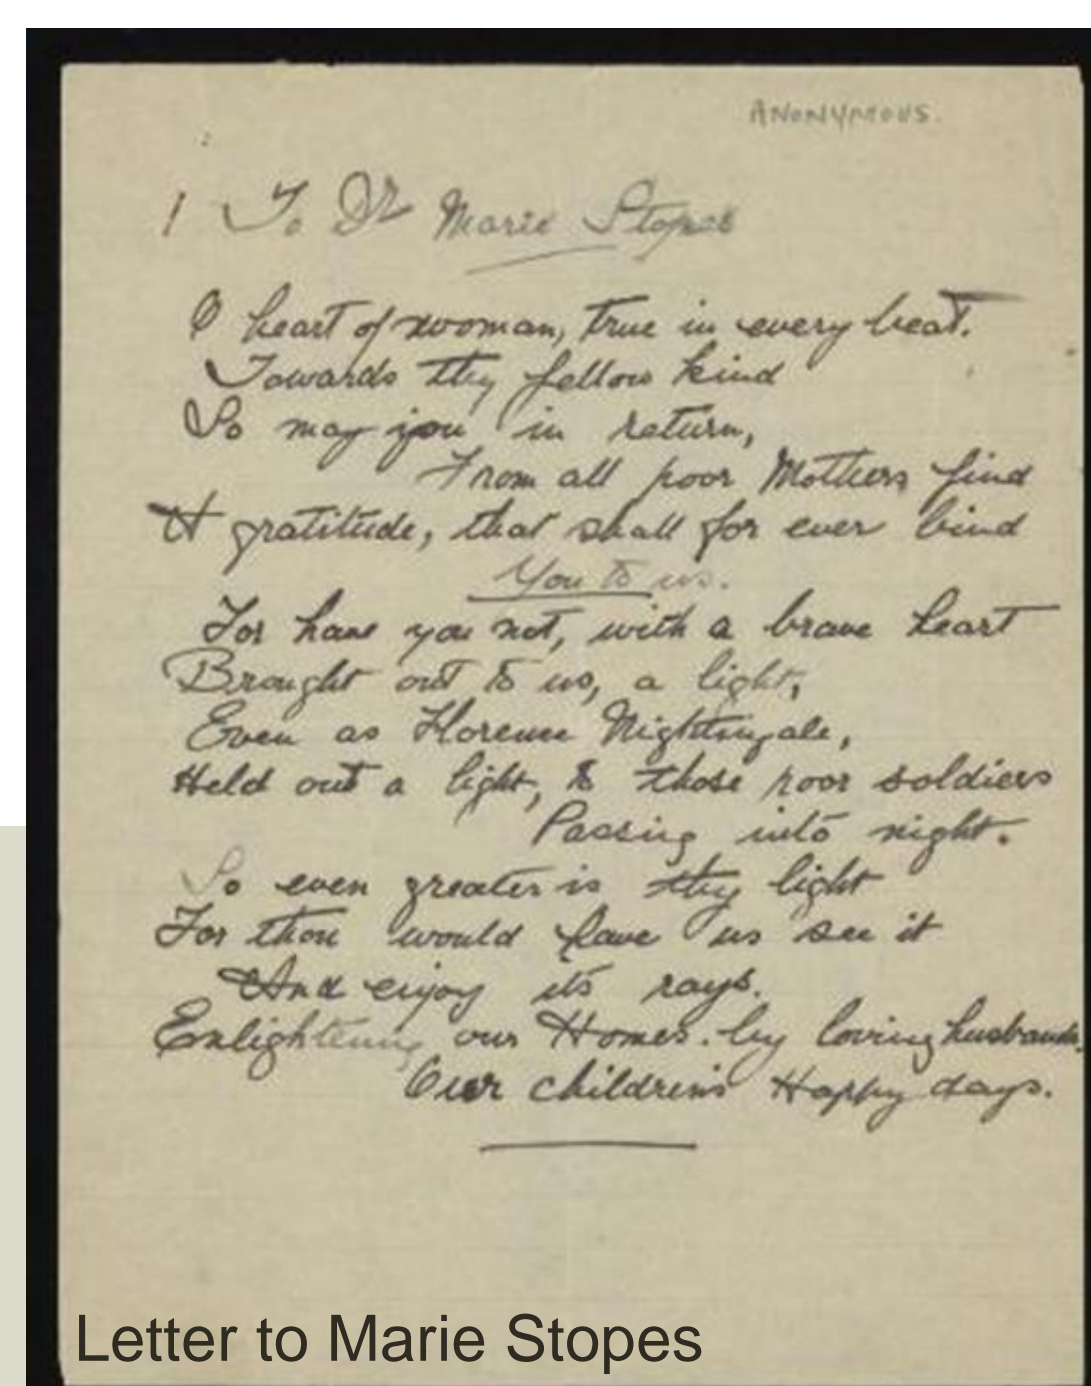 ANONYMOUS.
1 To Dr Marie Stopes
O heart of woman, true in every beat.
Towards thy fellow kind
So may you in return,
From all poor Mothers find
A gratitude, that shall for ever bind
You to us.
For have you not, with a brave heart
Brought out to us, a light,
Even as Florence Nightingale,
Held out a light, to those poor soldiers
Passing into night.
So even greater is thy light
For thou would have us see it
And enjoy its rays.
Enlightening our Homes. by loving husbands,
Our children's Happy days.
Letter to Marie Stopes